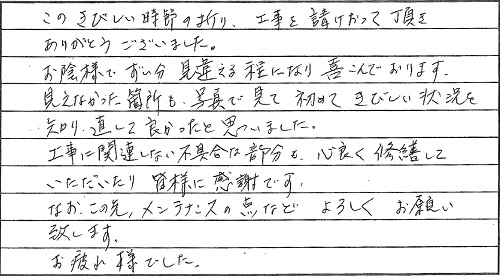 このきびしい時節の折り、工事を請けおって頂き
ありがとうございました。
お陰様でずい分見違える程になり喜こんでおります。
見えなかった箇所も、写真で見て初めてきびしい状況を
知り、直して良かったと思いました。
工事に関連しない不具合な部分も、心良く修繕して
いただいたり皆様に感謝です。
なお、この先、メンテナンスの点などよろしくお願い
致します。
お疲れ様でした。